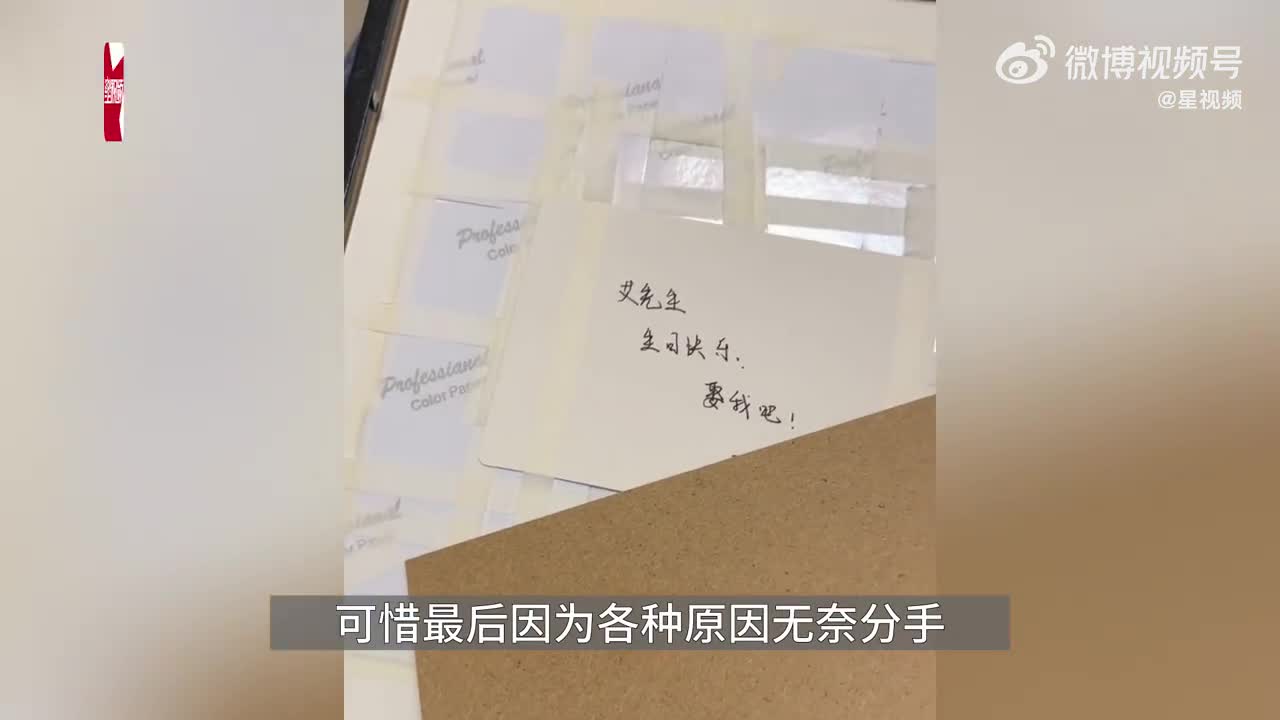 微博视频号
@星视频
Professional
Professional
Color Paper
艾先生
生日快乐!
娶我吧!
可惜最后因为各种原因无奈分手